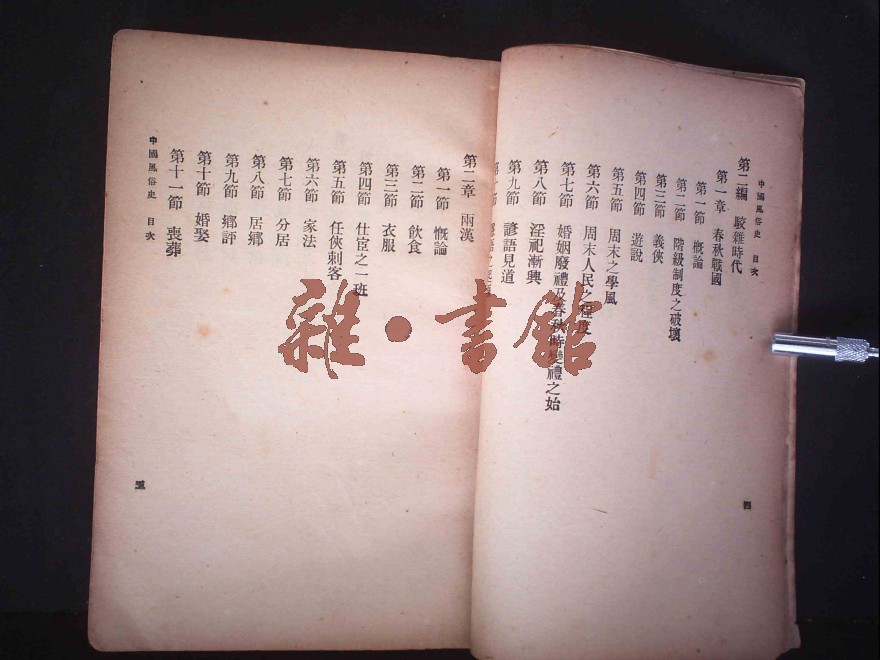 中國風俗史 目次
第二編 駁雜時代
第一章 春秋戰國
第一節 慨論
第二節 階級制度之破壞
第三節 義俠
第四節 遊說
第五節 周末之學風
第六節 周末人民之程度
第七節 婚姻廢禮及春秋時變禮之始
第八節 淫祀漸興
第九節 諺語見道
四
第二章 兩漢
第一節 慨論
第二節 飲食
第三節 衣服
第四節 仕宦之一班
第五節 任俠刺客
第六節 家法
第七節 分居
第八節 居鄉
第九節 鄉評
第十節 婚娶
第十一節 喪葬
中國風俗史 目次
五
雜·書館